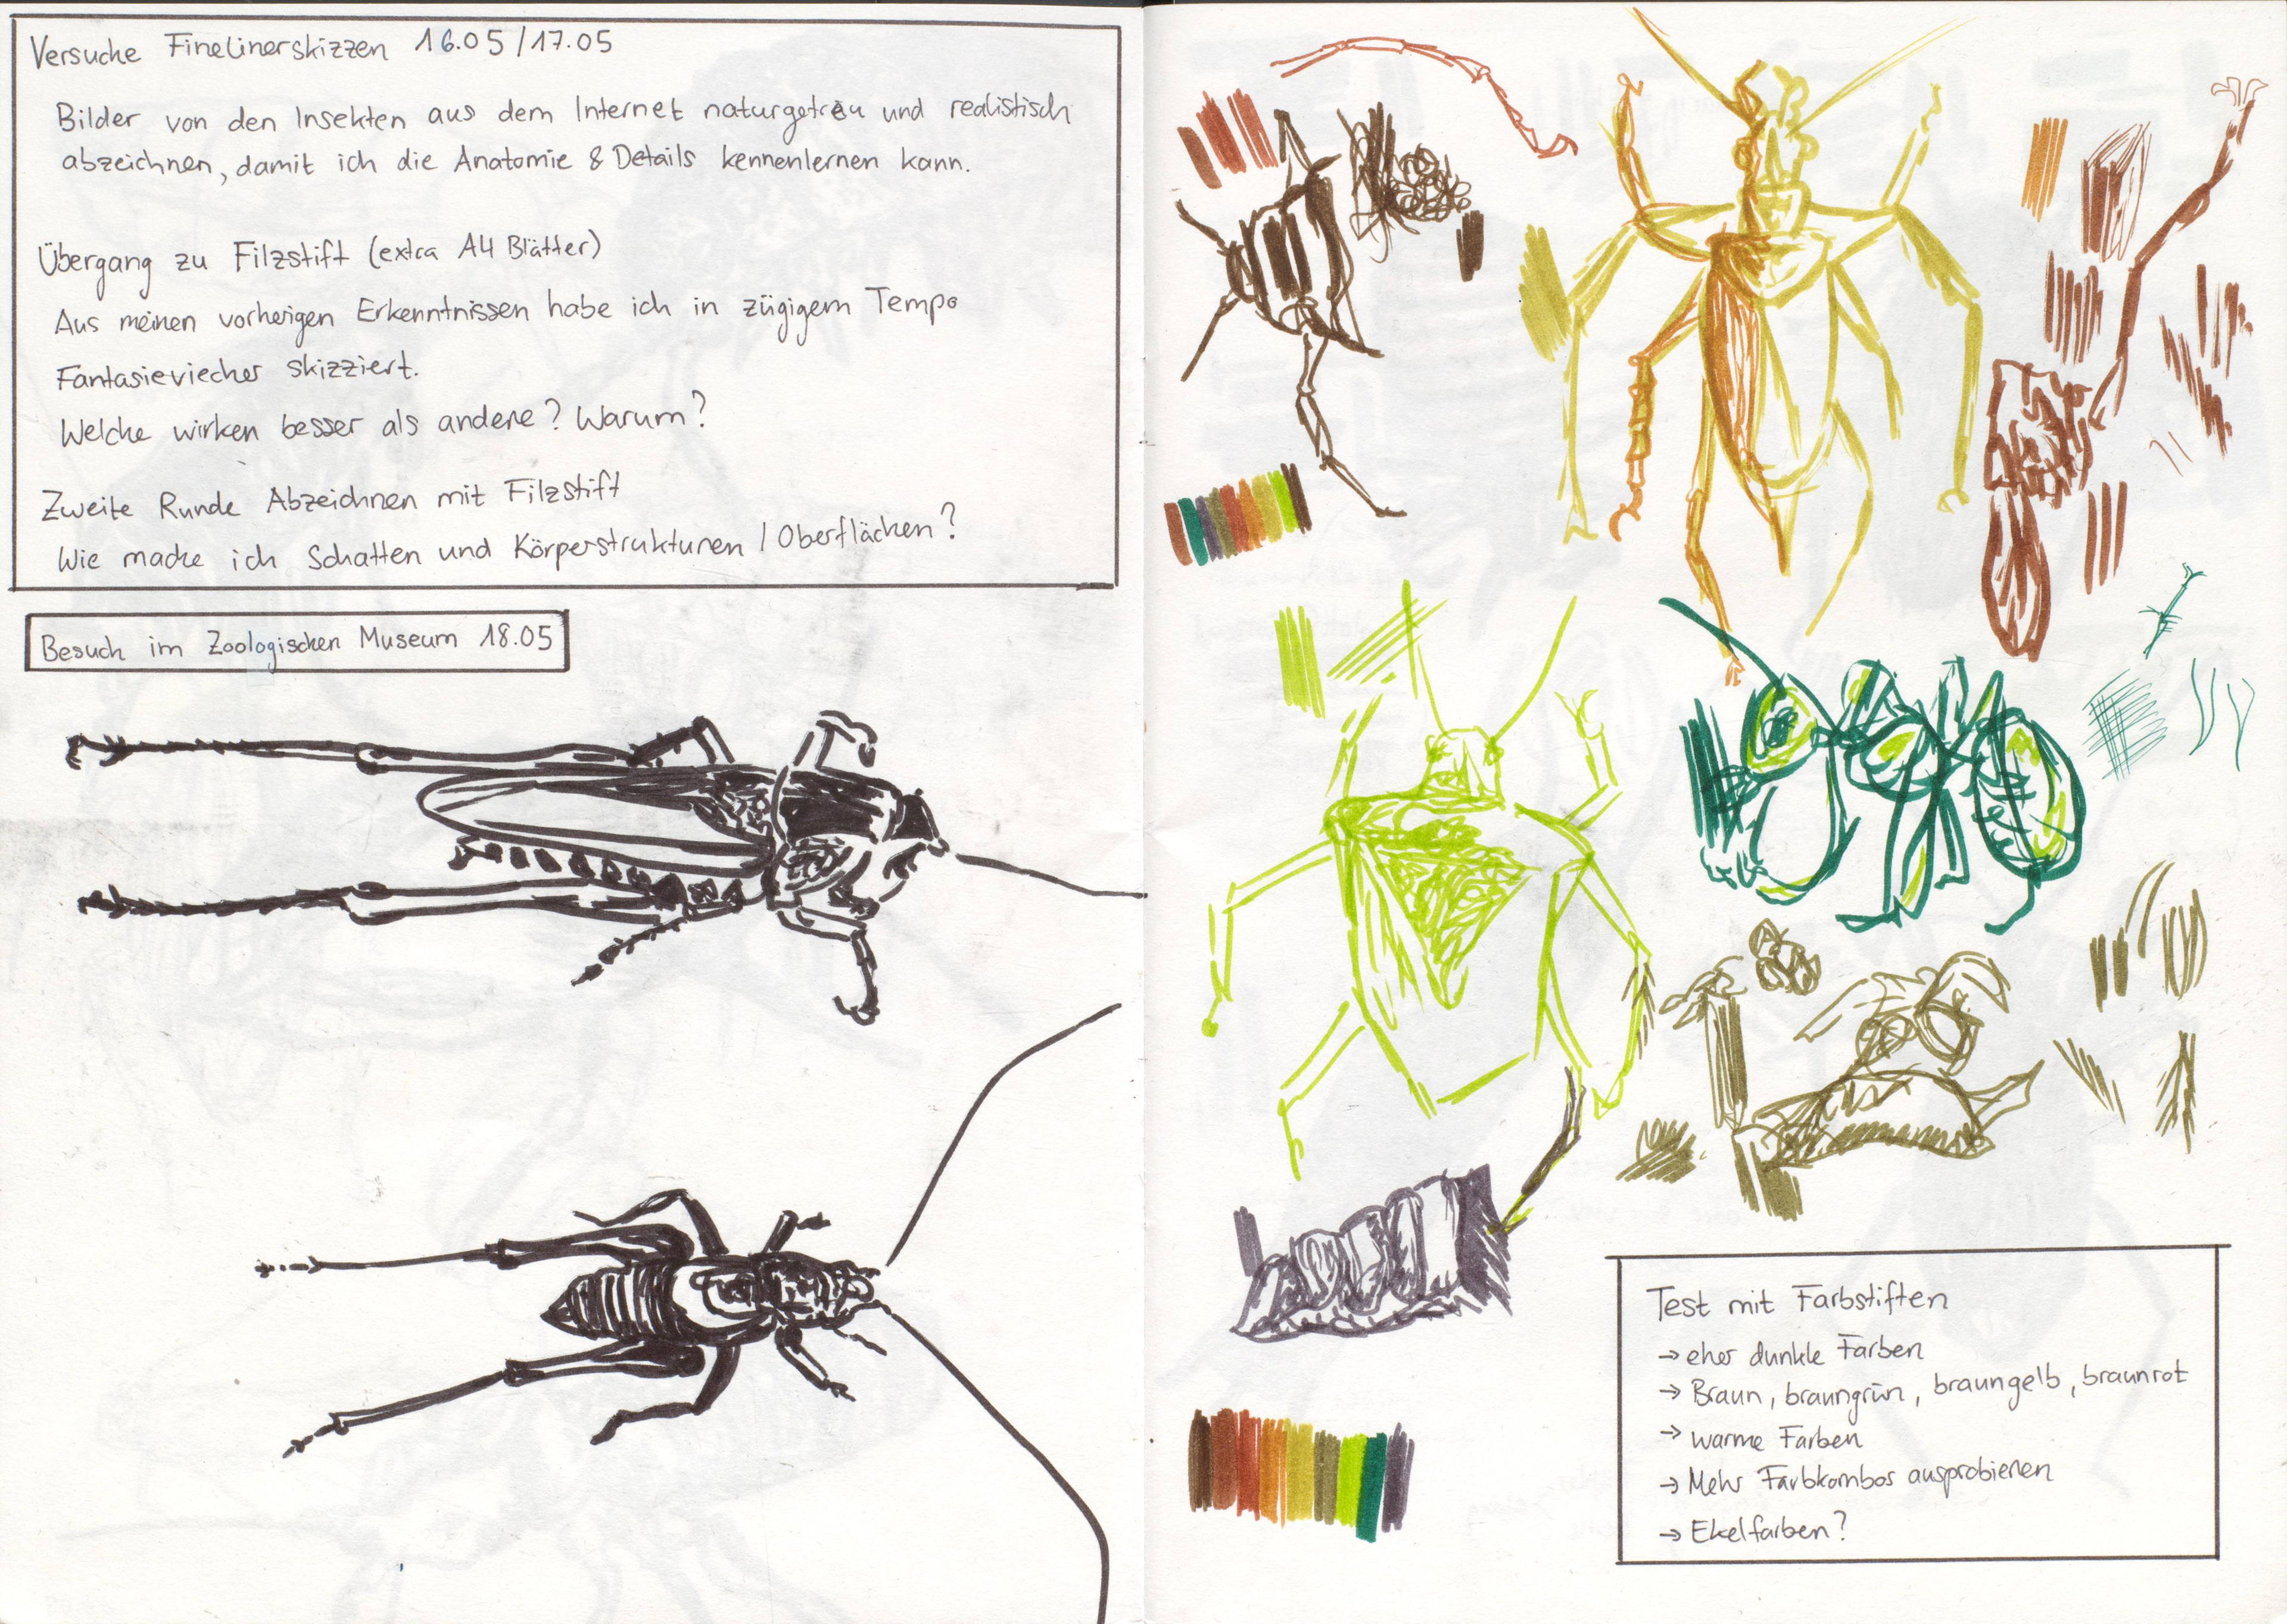 Versuche Finelinerskizzen 16.05/17.05
Bilder von den Insekten aus dem Internet naturgetreu und realistisch
abzeichnen, damit ich die Anatomie & Details kennenlernen kann.
Übergang zu Filzstift (extra A4 Blätter)
Aus meinen vorherigen Erkenntnissen habe ich in zügigem Tempo
Fantasieviecher skizziert.
Welche wirken besser als andere? Warum?
Zweite Runde Abzeichnen mit Filzstift
Wie mache ich Schatten und Körperstrukturen / Oberflächen?
Besuch im Zoologischen Museum 18.05
Test mit Farbstiften
→ eher dunkle Farben
→ Braun, braungrün, braungelb, braunrot
→ warme Farben
→ Mehr Farbkombos ausprobieren
→ Ekelfarben?